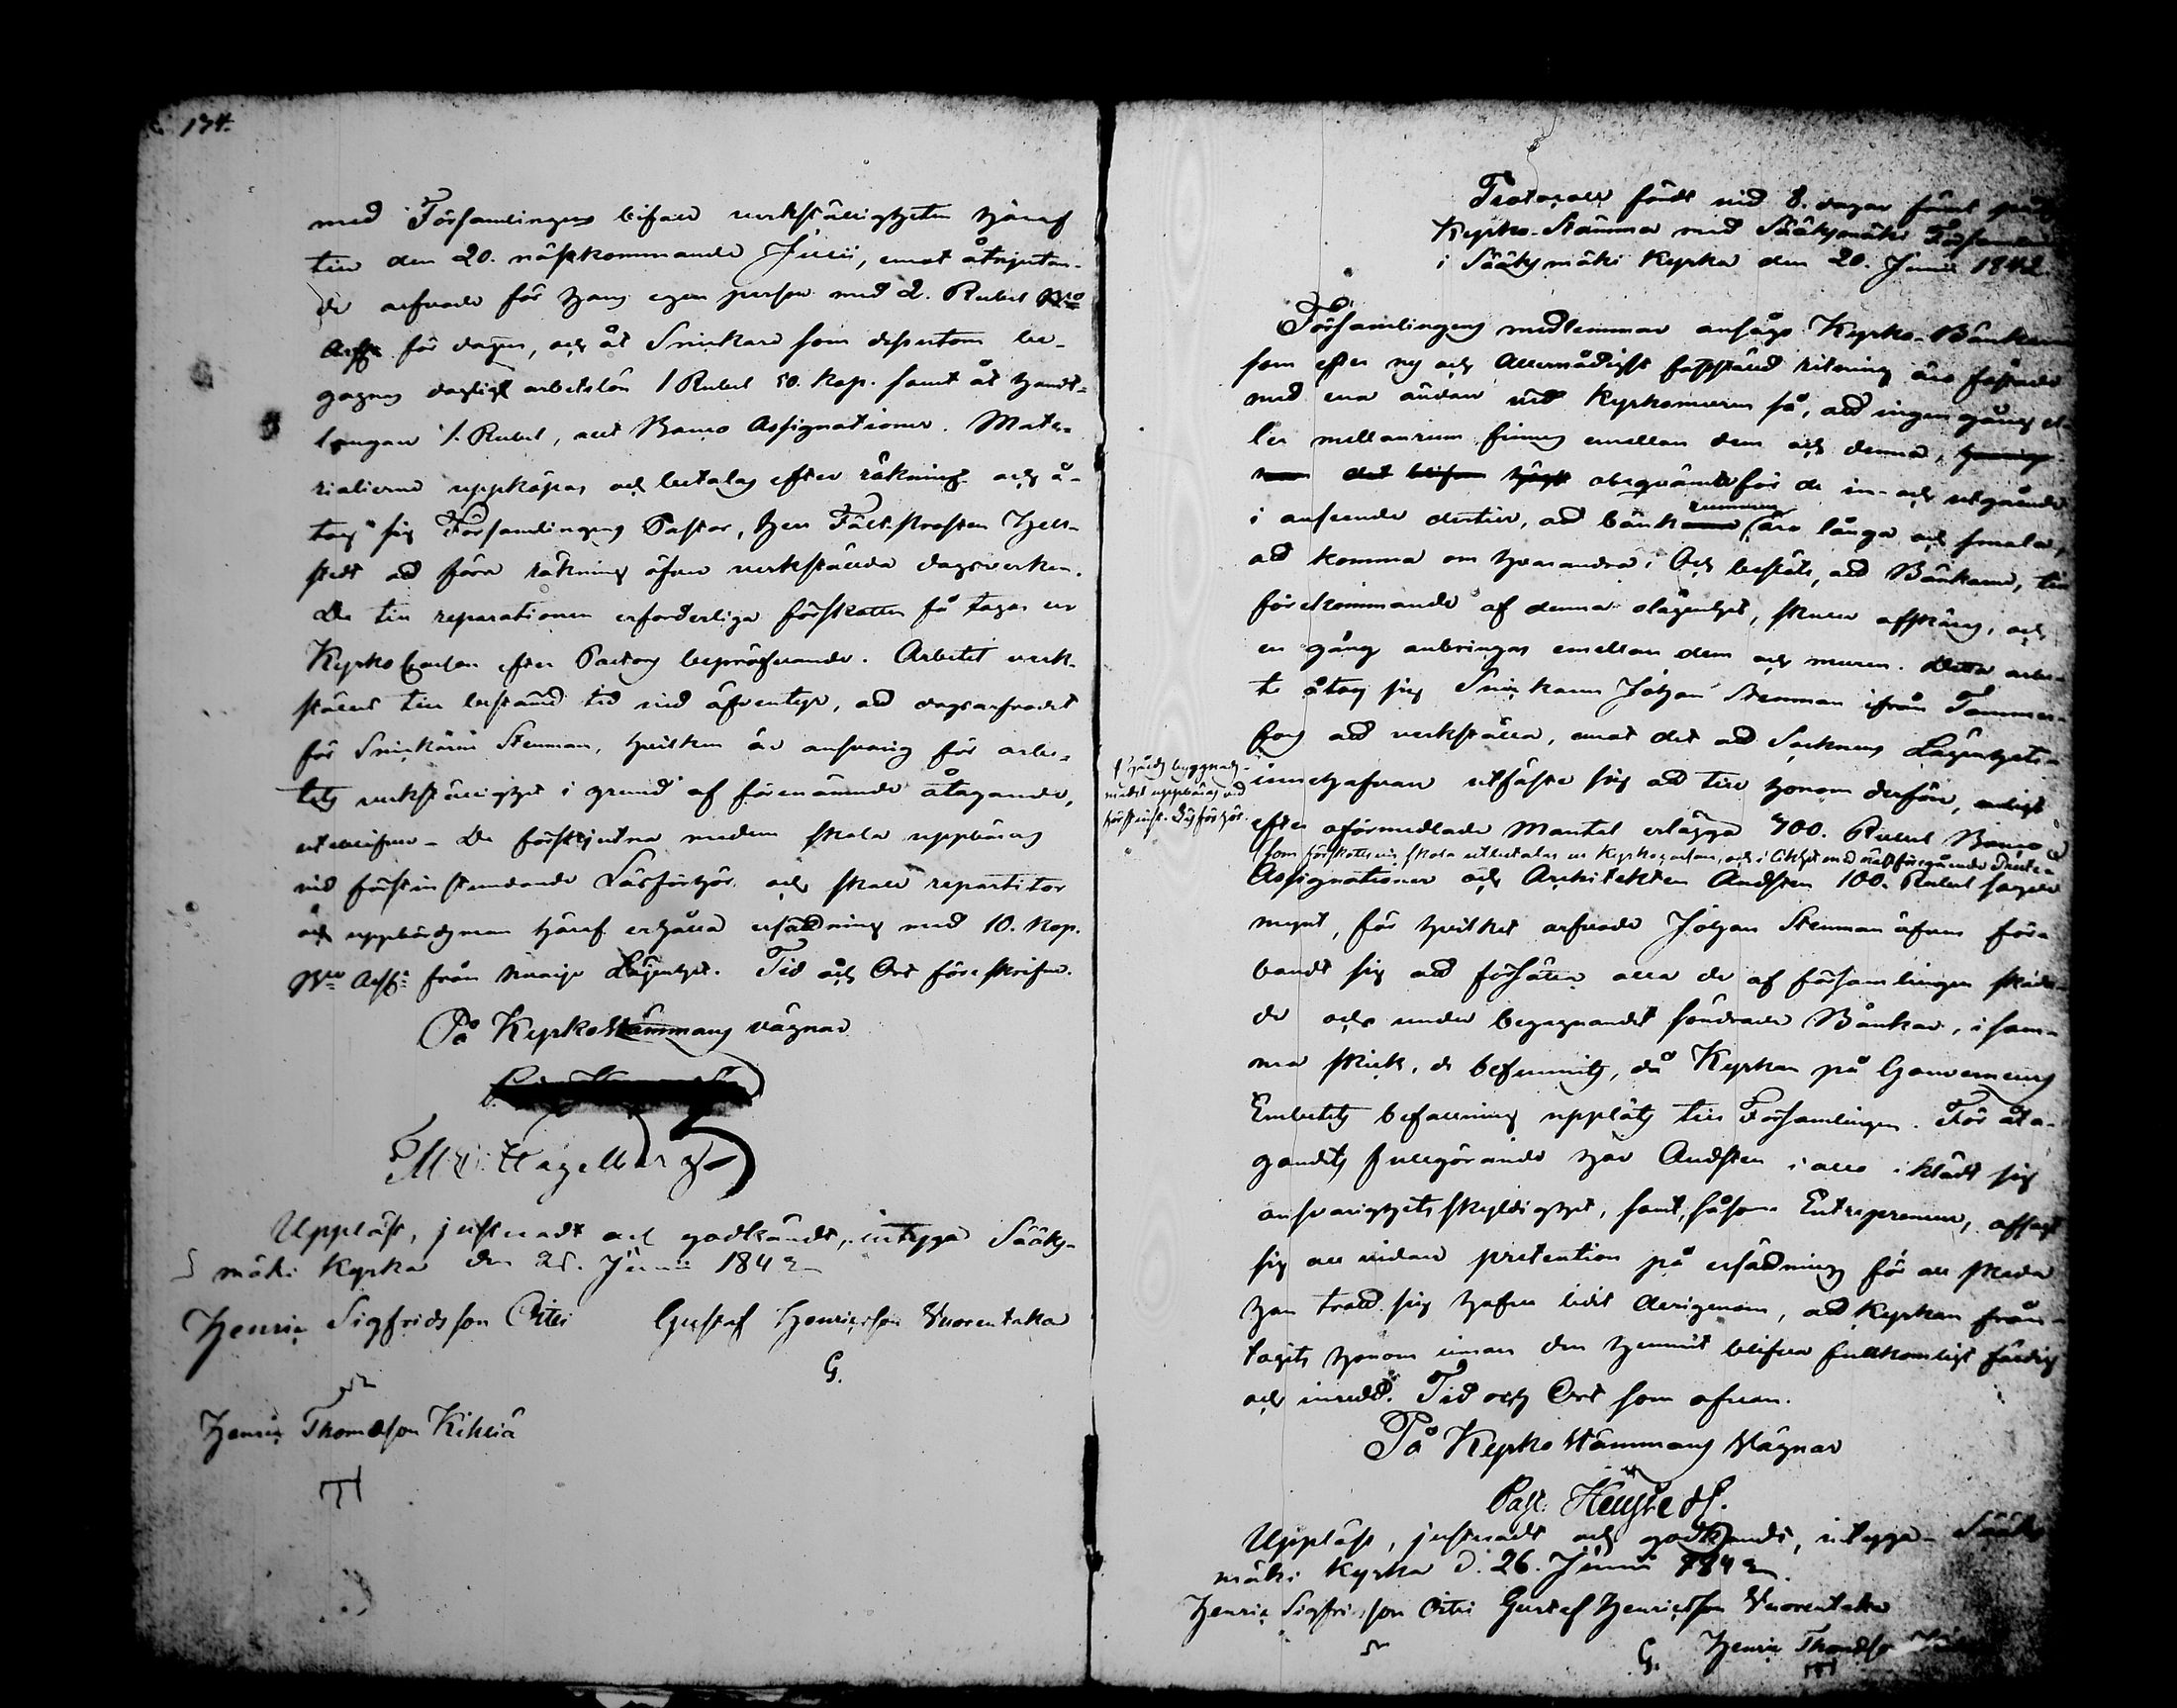 174.
med Församlingens bifall verkställigheten häraf
till den 20. nästkommande Junii, emot åtnjutan-
de arfvode för hans egen person med 2. Rubel Bco
Assg. för dagen, och åt Snickare som dessutom be-
gagnas dagligt arbetslön 1 Rubel 50. Kop. samt åt handt-
langare 1. Rubel, allt Banco Assignationer. Mate-
rialierne uppköpas och betalas efter räkning och å-
tog sig Församlingens Pastor, Herr Fält-Prosten Hell-
stedt att föra räkning öfver verkställda dagsverken.
De till reparationen erforderliga förskotten få tagas ur
Kyrko Cassan efter Pastors bepröfvande. Arbetet verk-
ställes till bestämd tid vid äfventyr, att dagsarfvodet
för Snickaren Stenman, hvilken är ansvarig för arbe-
tets verkställighet i grund af förenämnde åtagande,
uteblifver. De förskjutna medlen skola uppbäras
vid först instundande Läsförhör och skall repartitor
och uppbördsman häraf erhålla ersättning med 10. Kop.
Bco Assg: från hvarje Lägenhet. Tid och Ort föreskrifne.
På Kyrkostämmans vägnar
Hagelberg
Uppläst, justeradt och godkändt, intyga Sääks-
mäki Kyrka den 26. Junii 1842
Henric Sigfridsson Oitti Gustaf Henricsson Vuorentaka
G.
Henric Thomasson Kihliä
Protocoll fördt vid 8. dagar förut pålyst
Kyrko-Stämma med Sääksmäki Församling
i Sääksmäki Kyrka den 20. Junii 1842.
Församlingens medlemmar ansågo Kyrko-Bänkarne
som efter ny och Allernådigst fastställd ritning äro fästade
med ena ändan vid Kyrkomuren så, att ingen gång el-
ler mellanrum finnes emellan dem och denna,
obeqväma för de in- och utgående
i anseende dertill, att bänk rummen äro långa och smala,
att komma om hvarandra; Och beslöts, att Bänkarne, till
förekommande af denna olägenhet, skulle afskäras, och
en gång anbringas emellan dem och muren. Detta arbe-
te åtog sig Snickaren Johan Stenman ifrån Tammer-
fors att verkställa, emot det att Socknens Lägenhets-
innehafvare utfäste sig att till honom derföre,
efter oförmedlade Mantal erlägga 700. Rubel Banco
som förskottsvis skola utbetalas ur Kyrkocassan, och i likhet med nästföregående
Assignationer och Architekten Andsten 100. Rubel
mynt, för hvilket arfvode Johan Stenman äfven för-
bandt sig att försätta alla de af församlingen skada-
de och under begagnandet söndrade Bänkar, i sam-
ma skick, de befunnits, då Kyrkan på Gouvernements
Embetets befallning uppläts till Församlingen. För åta-
gandets fullgörande har Andsten i allo iklädt sig
ansvarighets skyldighet, samt, såsom Entrepreneur, afsagt
sig all vidare pretention på ersättning för all skada
han trott sig hafva lidit derigenom, att Kyrkan från-
tagits honom innan den hunnit blifva fullkomligt färdig
och inredd. Tid och Ort som ofvan.
På Kyrko Stämmans Vägnar
Carl Hellstedt.
Uppläst, justeradt och godkändt, intyga Sääks-
mäki Kyrka d. 26. Junii 1842.
Henric Sigfridsson Oitti Gustaf Henricsson Vuorentaka
G. Henric Thomasson